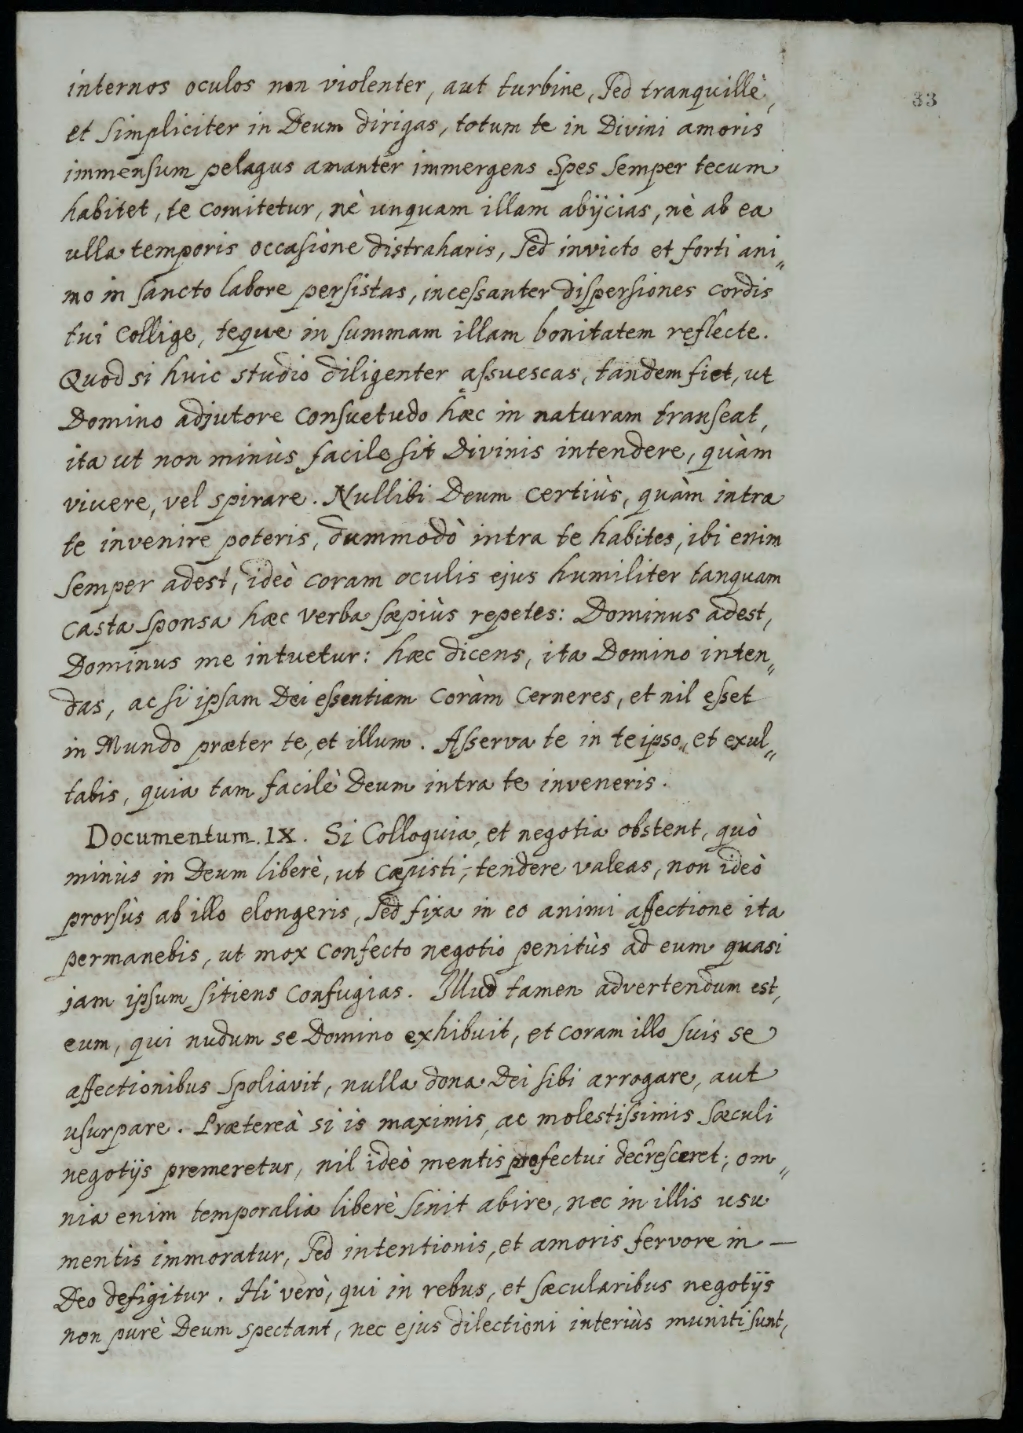 33
internos oculos non violenter, aut turbine, sed tranquillè,
et simpliciter in Deum dirigas, totum te in Divini amoris
immensum pelagus amanter immergens Spes semper tecum
habitet, te comitetur, nè unquam illam abijcias, nè ab ea
ulla temporis occasione distraharis, sed invicto et forti ani„
mo in sancto labore persistas, incessanter dispersiones cordis
tui collige, teque in summam illam bonitatem reflecte.
Quod si huic studio diligenter assuescas, tandem fiet, ut
Domino adjutore consuetudo hæc in naturam transeat,
ita ut non minùs facile sit Divinis intendere, quàm
vivere, vel spirare. Nullibi Deum certiùs, quàm intra
te invenire poteris, dummodò intra te habites, ibi enim
semper adest, ideò coram oculis ejus humiliter tanquam
casta sponsa hæc verba sæpiùs repetes: Dominus adest,
Dominus me intuetur: hæc dicens, ita Domino inten„
das, ac si ipsam Dei essentiam coràm cerneres, et nil esset
in Mundo præter te, et illum. Asserva te in te ipso, et exul„
tabis, quia tam facilè Deum intra te inveneris.
Documentum. IX. Si Colloquia, et negotia obstent, quò
minùs in Deum liberè, ut cæpisti, tendere valeas, non ideò
prorsùs ab illo elongeris, sed fixa in eo animi affectione ita
permanebis, ut mox confecto negotio penitùs ad eum quasi
jam ipsum sitiens confugias. Illud tamen advertendum est,
eum, qui nudum se Domino exhibuit, et coram illo suis se
affectionibus spoliavit, nulla dona Dei sibi arrogare, aut
usurpare. Prætereà si is maximis, ac molestissimis sæculi
negotijs premeretur, nil ideò mentis profectui decresceret; om„
nia enim temporalia liberè sinit abire, nec in illis usu
mentis immoratur, sed intentionis, et amoris fervore in —
Deo defigitur. Hi verò, qui in rebus, et sæcularibus negotijs
non purè Deum spectant, nec ejus dilectioni interiùs muniti sunt,